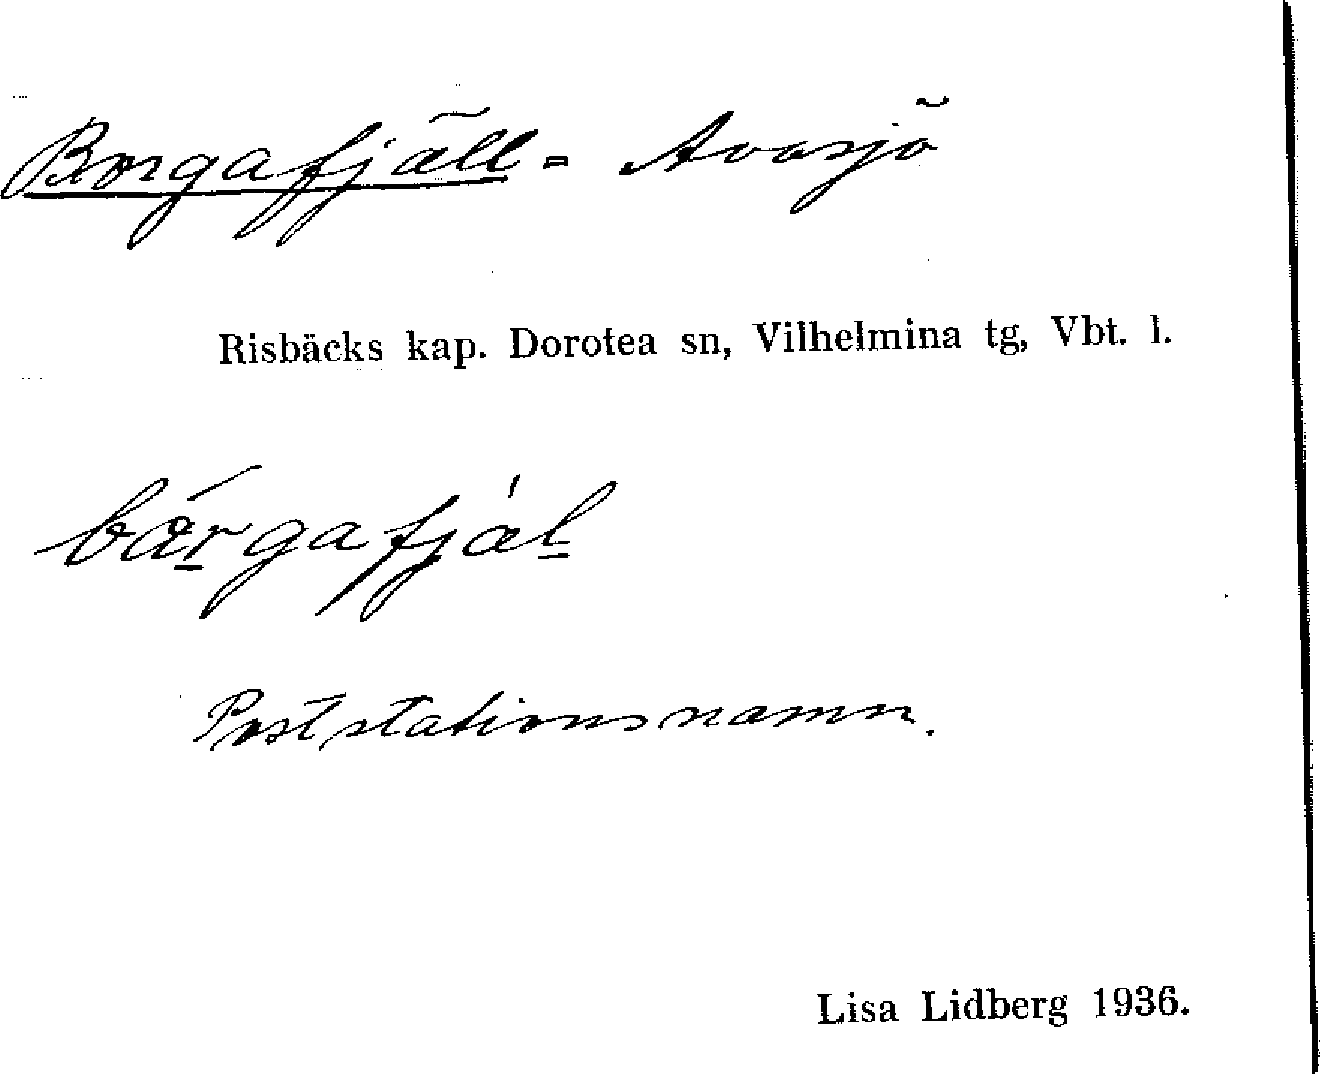 Borgafjäll = Avasjö
Risbäcks kap. Dorotea sn, Vilhelmina tg, Vbt. l.
Poststationsnamn.
Lisa Lidberg 1936.